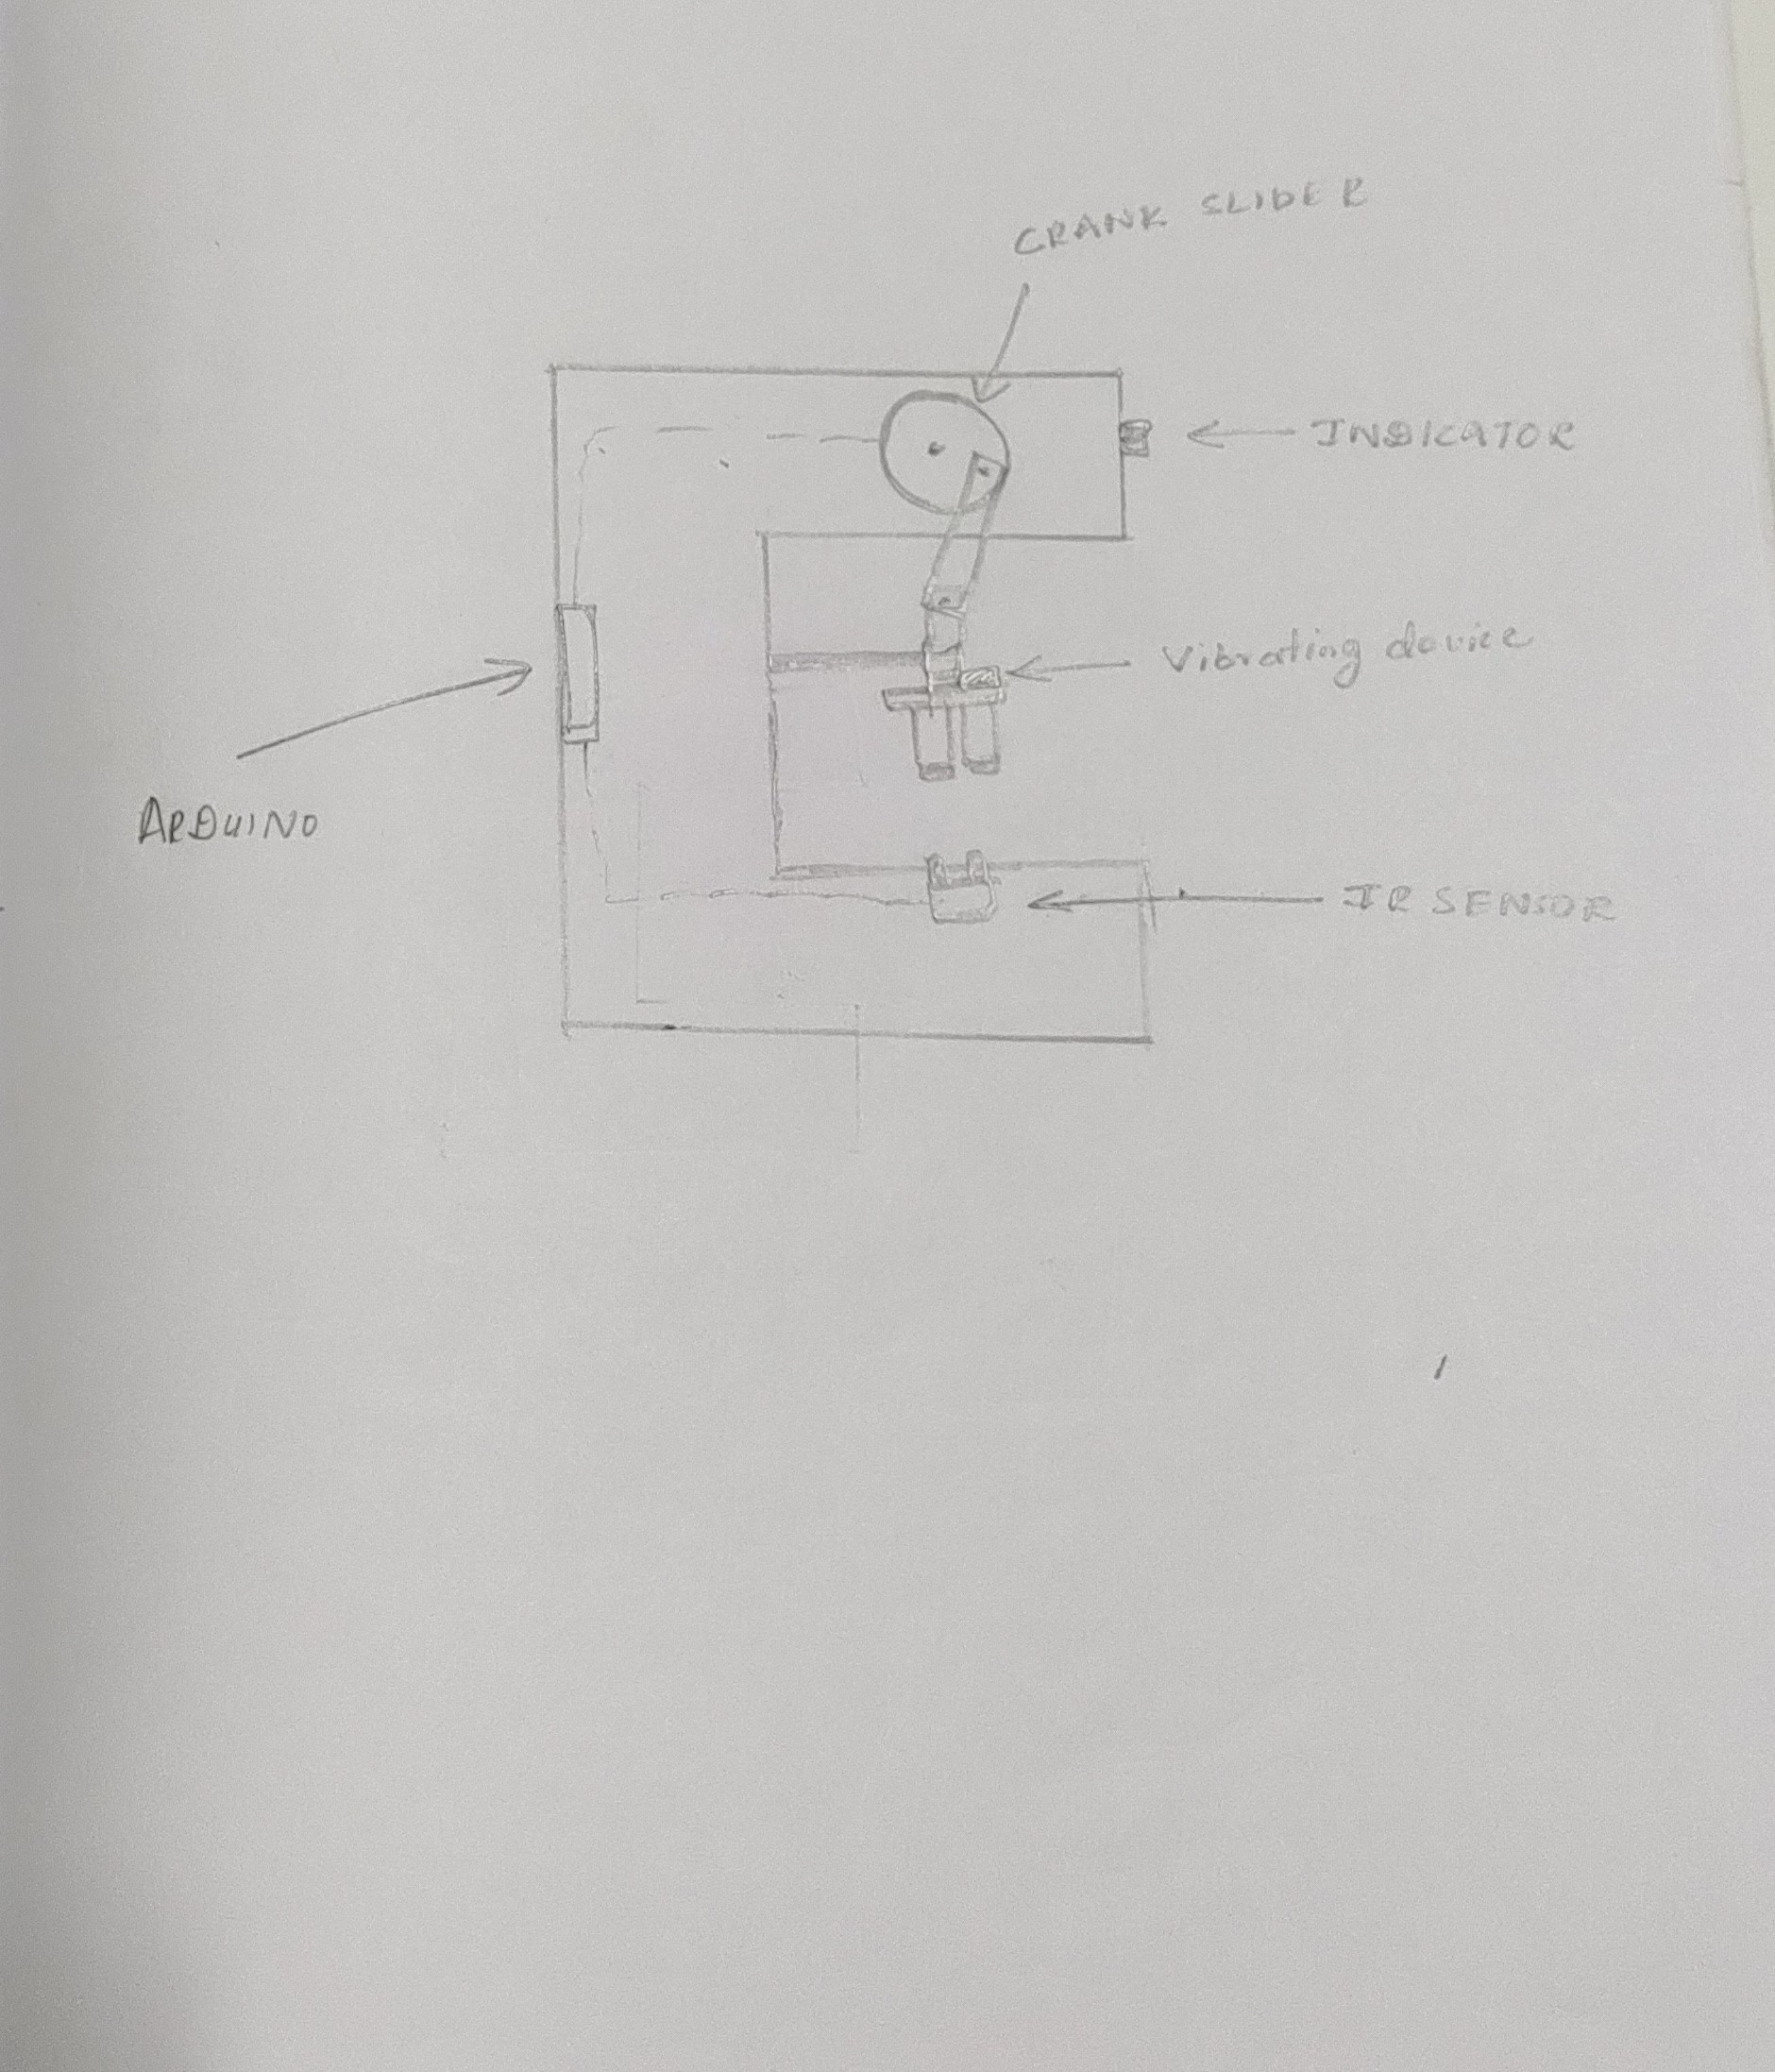 CRANK SLIDER
INDICATOR
Vibrating device
ARDUINO
IR SENSOR